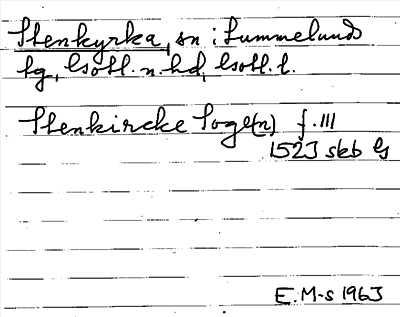 Stenkyrka, sn: Lummelunds
tg, Gotl. n. hd, Gotl. l.
Stenkircke Soge(n) f. 111
1523 skb G
E. M-s 1963